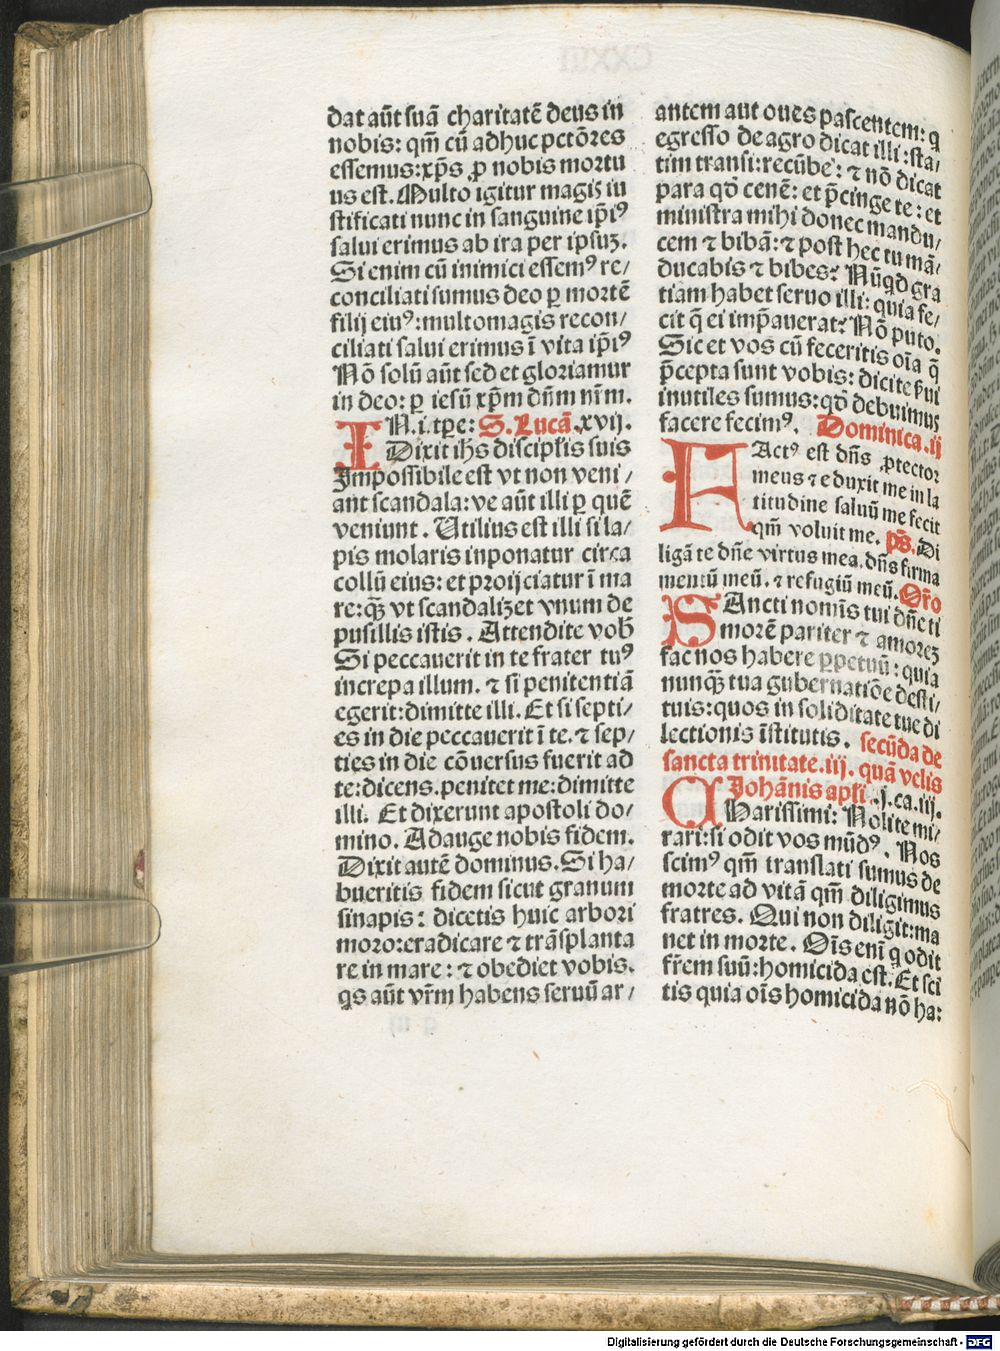 dat aūt suā charitatē deus in
nobis: qm̄ cū adhuc pctōres
essemus: xp̄s ꝓ nobis mortu
us est. Multo igitur magiꝫ iu
stificati nunc in sanguine ip̄iꝰ
salui erimus ab ira per ipsuꝫ.
Si enim cū inimici essemꝰ re/
conciliati sumus deo ꝑ mortē
filij eiuꝰ: multomagis recon/
ciliati salui erimus ī vita ip̄iꝰ
Nō solū aūt sed et gloriamur
in deo: ꝑ iesū xp̄m dn̄m nr̄m.
IN. i. tꝑe: S. Lucā. xvij.
Dixit ihs discipl̄is suis
Impossibile est vt non veni/
ant scandala: ve aūt illi ꝑ quē
veniunt. Utilius est illi si la/
pis molaris inponatur circa
collū eius: et proijciatur ī ma
re: qꝫ̄ vt scandalizet vnum de
pusillis istis. Attendite vob̄
Si peccauerit in te frater tuꝰ
increpa illum. ⁊ si penitentiā
egerit: dimitte illi. Et si septi/
es in die peccauerit ī te. ⁊ sep/
ties in die cōuersus fuerit ad
te: dicens. penitet me: dimitte
illi. Et dixerunt apostoli do/
mino. Adauge nobis fidem.
Dixit autē dominus. Si ha/
bueritis fidem sicut granum
sinapis: dicetis huic arbori
moro: eradicare ⁊ trāsplanta
re in mare: ⁊ obediet vobis.
qs aūt vr̄m habens seruū ar/
antem aut oues pascentem: q
egresso de agro dicat illi: sta/
tim transi: recūbe: ⁊ nō dicat
para qd̄ cenē: et p̄cinge te: et
ministra mihi donec mandu/
cem ⁊ bibā: ⁊ post hec tu mā/
ducabis ⁊ bibes? Nūqd gra
tiam habet seruo illi: quia fe/
cit q̄ ei imp̄auerat? Nō puto.
Sic et vos cū feceritis oīa q̄
p̄cepta sunt vobis: dicite ẜui
inutiles sumus: qd̄ debuimus
facere fecimꝰ. Dominica. ij
FActꝰ est dn̄s ꝓtector
meus ⁊ eduxit me in la
titudine saluū me fecit
qm̄ voluit me. p̄s. Di
ligā te dn̄e virtus mea. dn̄s firma
mentū meū. ⁊ refugiū meū. Or̄o
SAncti nomīs tui dn̄e ti
morē pariter ⁊ amoreꝫ
fac nos habere ꝑpetuū: quia
nunqꝫ̄ tua gubernatiōe desti/
tuis: quos in soliditate tue di
lectionis īstitutis. secūda de
sancta trinitate. iij. quā velis
Johānis apl̄i. j. ca. iij.
CHarissimi: Nolite mi/
rari: si odit vos mūdꝰ. Nos
scimꝰ qm̄ translati sumus de
morte ad vitā qm̄ diligimus
fratres. Qui non diligit: ma
net in morte. Oīs enī q odit
fr̄em suū: homicida est. Et sci
tis quia oīs homicida nō ha:
Digitalisierung gefördert durch die Deutsche Forschungsgemeinschaft - DFG